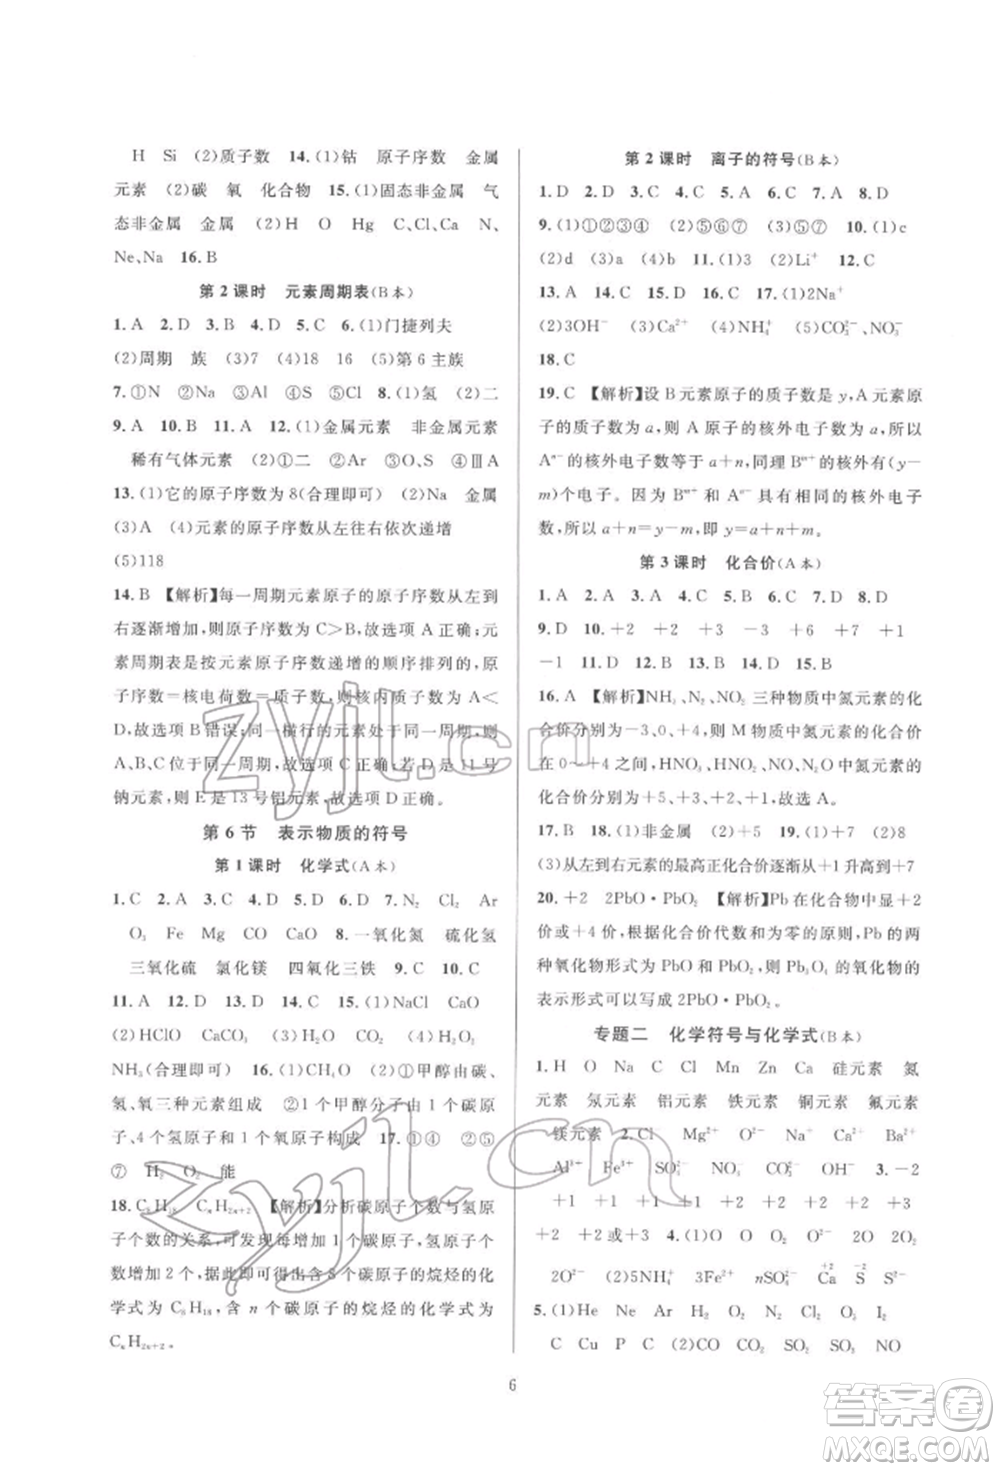 H Si (2)质子数 14.(1)钴 原子序数 金属
元素 (2)碳 氧 化合物 15.(1)固态非金属 气
态非金属 金属 (2)H O Hg C、C、Cl、N、
Ne、Na 16.B
第2课时 元素周期表(B本)
1.A 2.D 3.B 4.D 5.C 6.(1)门捷列夫
(2)周期 族 (3)7 (4)18 16 (5)第6主族
7.①N ②Na ③Al ④S ⑤Cl 8.(1)氢 (2)二
9.A 10.B 11.A 12.(1)金属元素 非金属元素
稀有气体元素 (2)①二 ②Ar ③S ④ⅢA
13.(1)它的原子序数为8(合理即可) (2)Na 金属
(3)A (4)元素的原子序数从左往右依次递增
(5)118
14.B 【解析】每一周期元素原子的核电荷数从左到
右逐渐增加,则原子序数为C>B,故选项A正确;元
素周期表是按元素原子序数递增的顺序排列的,原
子序数=核电荷数=质子数,则核内质子数A<
D,故选项B错误;元素A、B位于同一周期,则
A、B、C位于同一周期,故选项C正确;若D是11号
钠元素,则E是13号铝元素,故选项D正确。
第6节 表示物质的符号
第1课时 化学式(A本)
1.C 2.A 3.C 4.D 5.D 6.D 7.N₂ Cl₂ Ar
O₃ Fe Mg CO CaO 8.一氧化氮 硫化氢
三氧化硫 氯化镁 四氧化三铁 9.C 10.C
11.A 12.D 13.C 14.D 15.(1)NaCl CaO
(2)HClO H₂SO₄ (3)NaOH CaCO₃ (4)CH₄
NH₃(合理即可) 16.(1)CH₄O (2)①甲醇由碳、
氢、氧三种元素组成 ②1个甲醇分子由1个碳原
子、4个氢原子和1个氧原子构成 17.①③④ ②⑤
⑦ H₂ O₂ 能
18.C₈H₁₈ CₙH₂ₙ₊₂ 【解析】分析碳原子个数与氢原
子个数的关系,可发现每增加1个碳原子,氢原子
个数增加2个,据此即可得出含8个碳原子的烷烃的化
学式为C₈H₁₈,含n个碳原子的烷烃的化学式为
CₙH₂ₙ₊₂。
第2课时 离子的符号(B本)
1.D 2.D 3.D 4.C 5.A 6.C 7.A 8.D
9.(1)①②③④ (2)⑤⑥⑦ (3)⑤⑦ 10.(1)c
(2)d (3)a (4)b 11.(1)3 (2)Li⁺ 12.C
13.A 14.C 15.C 16.C 17.(1)2Na⁺
(2)3OH⁻ (3)Ca²⁺ (4)NH₄⁺ (5)CO₃²⁻、NO₃⁻
18.C
19.C 【解析】设B元素原子的质子数是y,A元素原
子的质子数为a,则A原子的核外电子数为a,所以
Aⁿ⁻的核外电子数等于a+n,同理Bᵐ⁺含有(y−
m)个电子。因为Bᵐ⁺和Aⁿ⁻具有相同的核外电子
数,所以a+n=y−m,即y=a+n+m。
第3课时 化合价(A本)
1.A 2.D 3.A 4.D 5.D 6.B 7.A 8.D
9.D 10.+2 +2 −3 −2 +4 +1
−1 11.D 12.C 13.B 14.D 15.B
16.A 【解析】NH₃、N₂、NO₂三种物质中氮元素的化
合价分别为−3、0、+4,则M物质中氮元素的化合价
在0~+4之间,HNO₃、NO、HNO₂、N₂O₄中氮元素的
化合价分别为+5、+2、+3、+4,故选A。
17.B 18.B 19.(1)非金属 (2)8
(3)从左到右元素的最高正化合价逐渐从+1升高到+7
20.+2 2PbO·PbO₂ 【解析】Pb在化合物中呈+2
价或+4价,根据化合价代数和为零的原则,Pb的两
种氧化物形式为PbO和PbO₂,则Pb₃O₄的氧化物的
表示形式可以写成2PbO·PbO₂。
专题二 化学符号与化学式(B本)
1.H O Na C Cl Mn Zn Ca 硅元素 氮
元素 氖元素 铝元素 铁元素 铜元素 氟元素
镁元素 2.Cl⁻ Mg²⁺ O²⁻ Na⁺ Ca²⁺
Al³⁺ Fe³⁺ SO₄²⁻ NO₃⁻ CO₃²⁻ 3.−2
+1 +1 +2 +2
−2
②2O²⁻ (2)5NH₄⁺ 3Fe²⁺ nSO₄²⁻
5.(1)He Ne Ar H₂ O₂ Cl₂ O₃ I₂
C Cu P C (2)CO CO₂ SO₂ SO₃ NO
6
zyjl.cn
zyjl.cn
答案圈
MXQE.COM